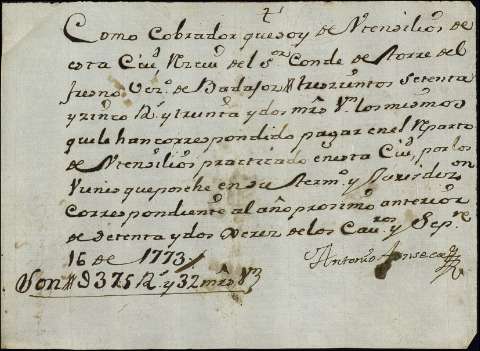 Como Cobrador que soy de Utensilios de
esta Ciu.d Rzeui del s.or Conde de Torre del
fresno Vez.o de Badajoz trescientos setenta
y zinco R.s y treinta y dos mrs Vn los mismos
que le han correspondido pagar en el Reparto
de Utensilios practicado en esta Ciu.d por los
Vienes que poshe en su Term.o y Jurisdiz.on
Correspondiente al año proximo anterior
de setenta y dos Xerez de los Cau.ros y Sep.re
16 de 1773,
Son # 375 R.s y 32 mrs Vn
Antonio Fonseca